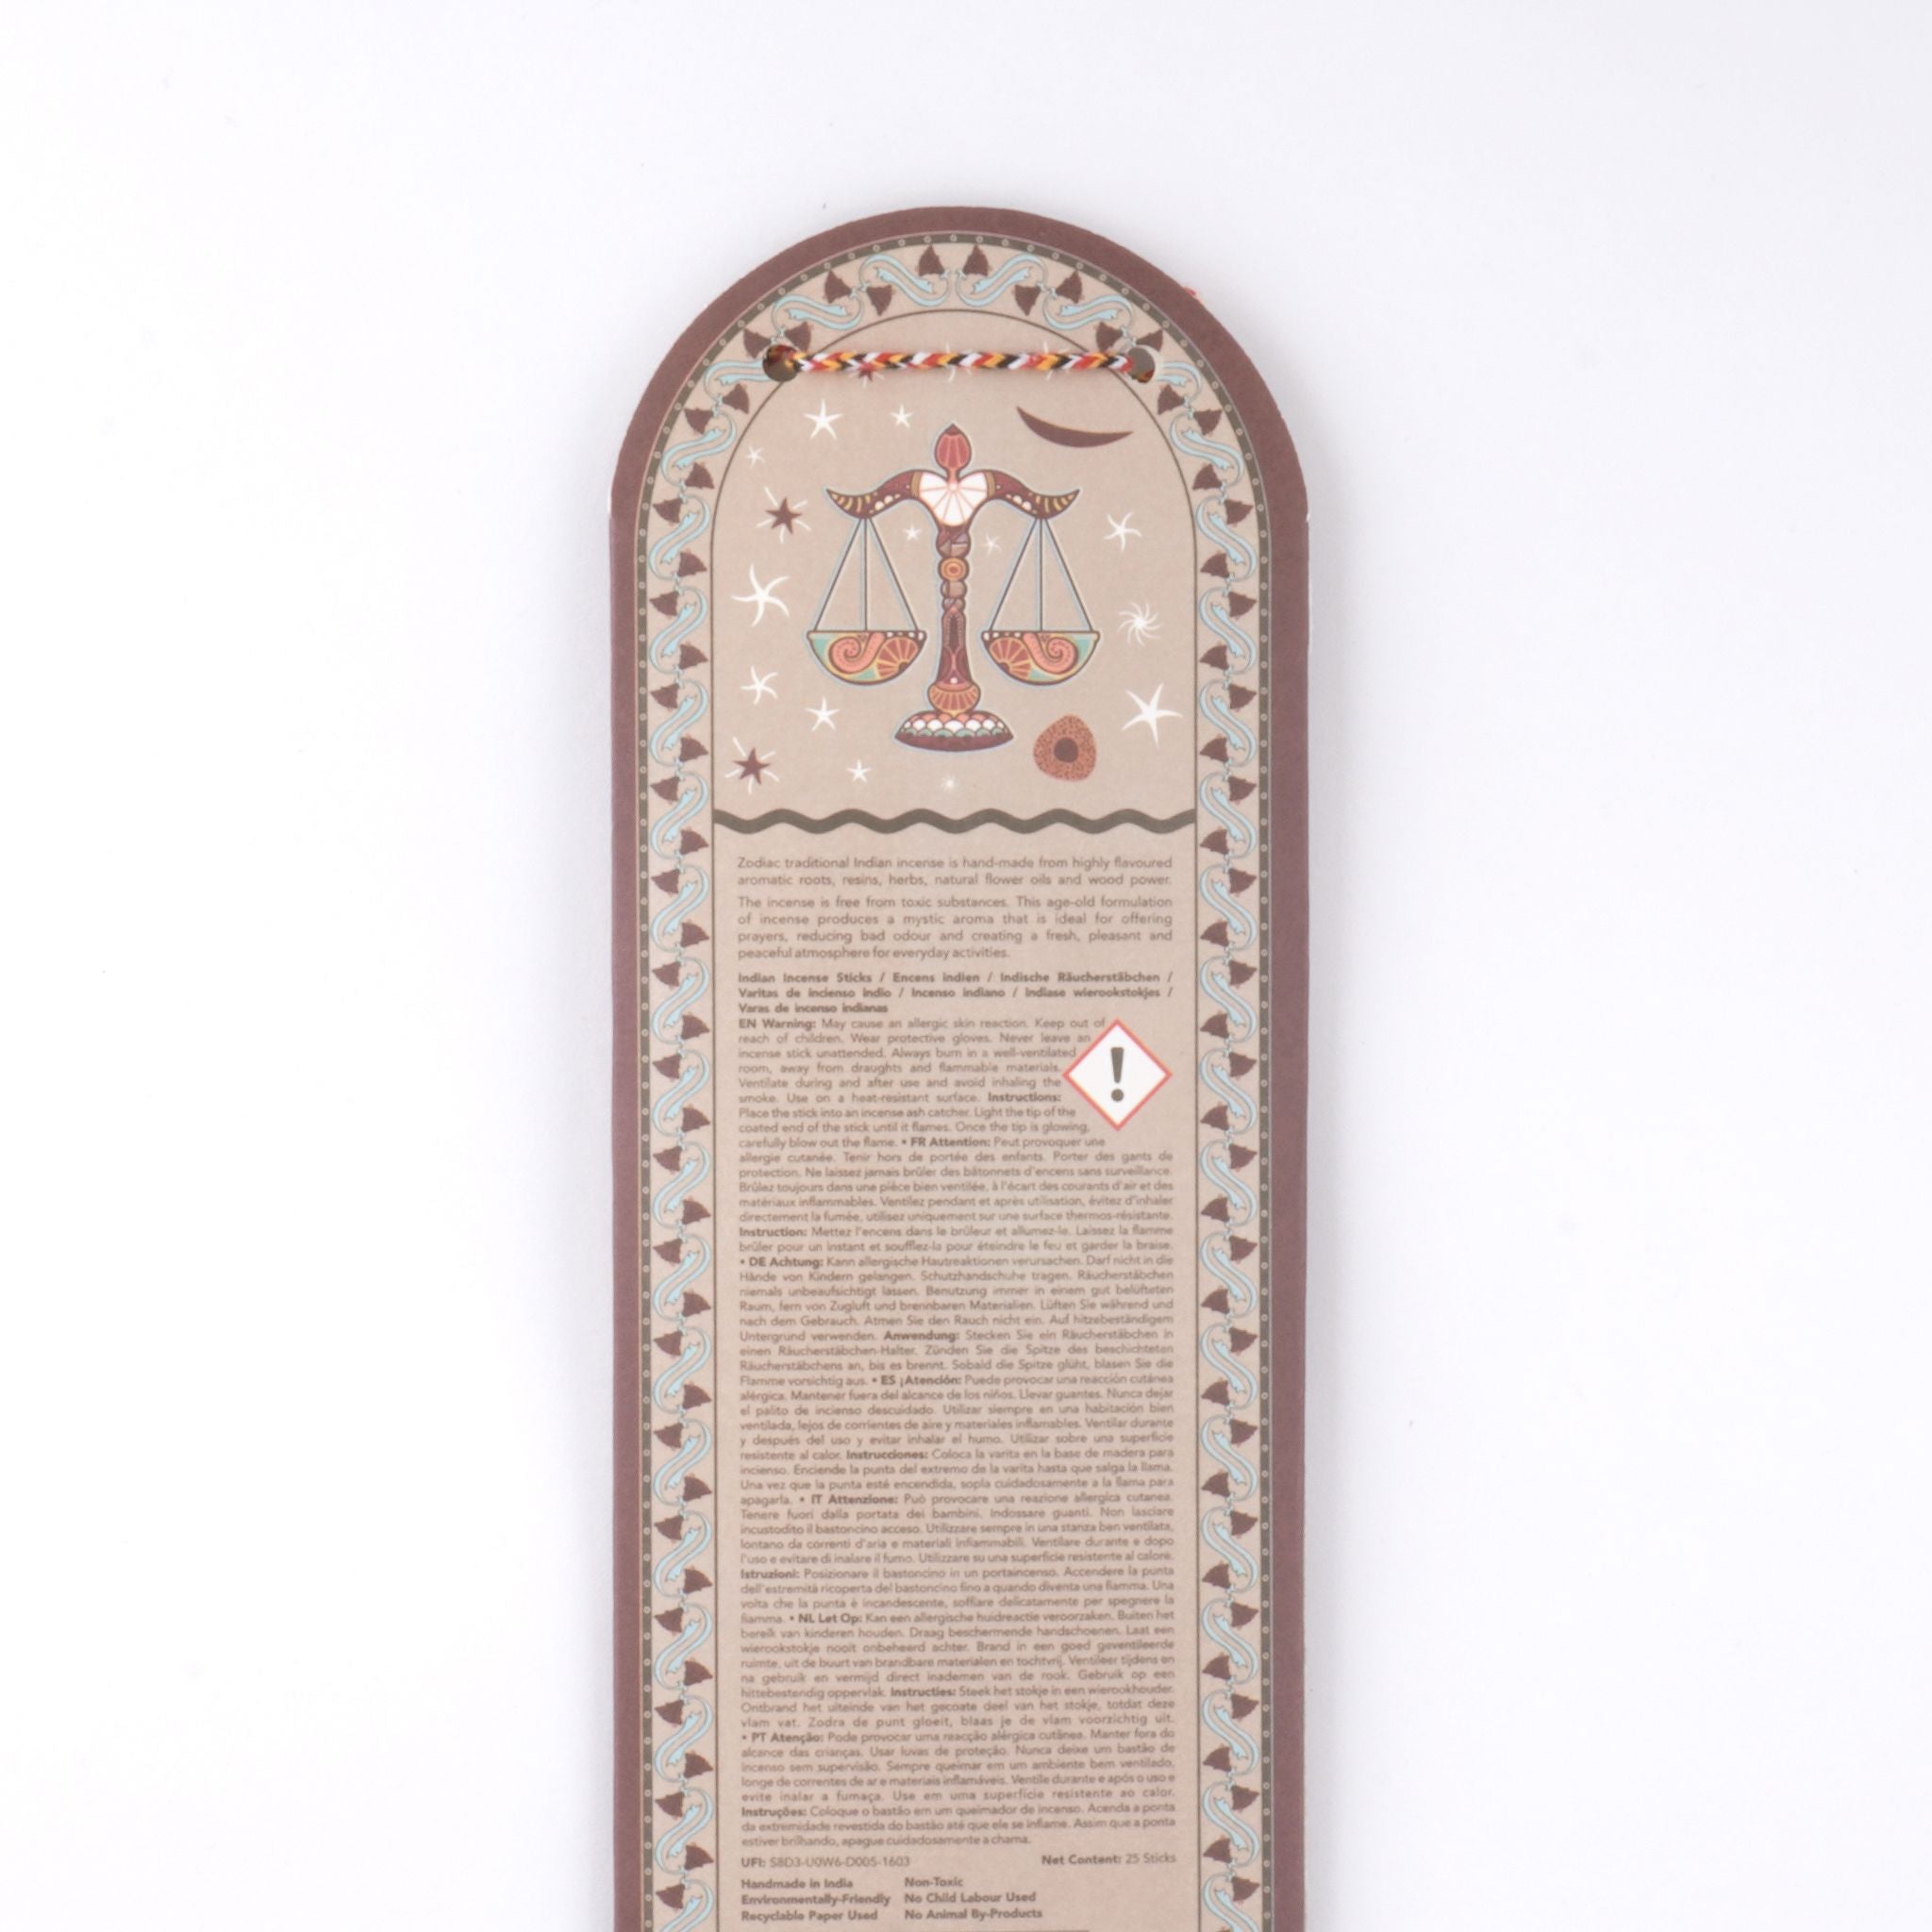 Zodiac traditional Indian incense is hand-made from highly flavoured
aromatic roots, resins, herbs, natural flower oils and wood power.
The incense is free from toxic substances. This age-old formulation
of incense produces a mystic aroma that is ideal for offering
prayers, reducing bad odour and creating a fresh, pleasant and
peaceful atmosphere for everyday activities.
Indian Incense Sticks / Encens indien / Indische Räucherstäbchen /
Varitas de incienso indio / Incenso indiano / Indiase wierookstokjes /
Varas de incenso indianas
EN Warning: May cause an allergic skin reaction. Keep out of
reach of children. Wear protective gloves. Never leave an
incense stick unattended. Always burn in a well-ventilated
room, away from draughts and flammable materials.
Ventilate during and after use and avoid inhaling the
smoke. Use on a heat-resistant surface. Instructions:
Place the stick into an incense ash catcher. Light the tip of the
coated end of the stick until it flames. Once the tip is glowing,
carefully blow out the flame. • FR Attention: Peut provoquer une
allergie cutanée. Tenir hors de portée des enfants. Porter des gants de
protection. Ne laissez jamais brûler des bâtonnets d'encens sans surveillance.
Brûlez toujours dans une pièce bien ventilée, à l'écart des courants d'air et des
matériaux inflammables. Ventilez pendant et après utilisation, évitez d'inhaler
directement la fumée, utilisez uniquement sur une surface thermos-résistante.
Instruction: Mettez l'encens dans le brûleur et allumez-le. Laissez la flamme
brûler pour un instant et soufflez-la pour éteindre le feu et garder la braise.
• DE Achtung: Kann allergische Hautreaktionen verursachen. Darf nicht in die
Hände von Kindern gelangen. Schutzhandschuhe tragen. Räucherstäbchen
niemals unbeaufsichtigt lassen. Benutzung immer in einem gut belüfteten
Raum, fern von Zugluft und brennbaren Materialien. Lüften Sie während und
nach dem Gebrauch. Atmen Sie den Rauch nicht ein. Auf hitzebeständigem
Untergrund verwenden. Anwendung: Stecken Sie ein Räucherstäbchen in
einen Räucherstäbchen-Halter. Zünden Sie die Spitze des beschichteten
Räucherstäbchens an, bis es brennt. Sobald die Spitze glüht, blasen Sie die
Flamme vorsichtig aus. • ES ¡Atención: Puede provocar una reacción cutánea
alérgica. Mantener fuera del alcance de los niños. Llevar guantes. Nunca dejar
el palito de incienso descuidado. Utilizar siempre en una habitación bien
ventilada, lejos de corrientes de aire y materiales inflamables. Ventilar durante
y después del uso y evitar inhalar el humo. Utilizar sobre una superficie
resistente al calor. Instrucciones: Coloca la varita en la base de madera para
incienso. Enciende la punta del extremo de la varita hasta que salga la llama.
Una vez que la punta esté encendida, sopla cuidadosamente a la flama para
apagarla. • IT Attenzione: Può provocare una reazione allergica cutanea.
Tenere fuori dalla portata dei bambini. Indossare guanti. Non lasciare
incustodito il bastoncino acceso. Utilizzare sempre in una stanza ben ventilata,
lontano da correnti d'aria e materiali infiammabili. Ventilare durante e dopo
l'uso e evitare di inalare il fumo. Utilizzare su una superficie resistente al calore.
Istruzioni: Posizionare il bastoncino in un portaincenso. Accendere la punta
dell'estremità ricoperta del bastoncino fino a quando diventa una fiamma. Una
volta che la punta è incandescente, soffiare delicatamente per spegnere la
fiamma. • NL Let Op: Kan een allergische huidreactie veroorzaken. Buiten het
bereik van kinderen houden. Draag beschermende handschoenen. Laat een
wierookstokje nooit onbeheerd achter. Brand in een goed geventileerde
ruimte, uit de buurt van brandbare materialen en tochtvrij. Ventileer tijdens en
na gebruik en vermijd direct inademen van de rook. Gebruik op een
hittebestendig oppervlak. Instructies: Steek het stokje in een wierookhouder.
Ontbrand het uiteinde van het gecoate deel van het stokje, totdat deze
vlam vat. Zodra de punt gloeit, blaas je de vlam voorzichtig uit.
• PT Atenção: Pode provocar uma reacção alérgica cutânea. Manter fora do
alcance das crianças. Usar luvas de proteção. Nunca deixe um bastão de
incenso sem supervisão. Sempre queimar em um ambiente bem ventilado,
longe de correntes de ar e materiais inflamáveis. Ventile durante e após o uso e
evite inalar a fumaça. Use em uma superfície resistente ao calor.
Instruções: Coloque o bastão em um queimador de incenso. Acenda a ponta
da extremidade revestida do bastão até que ele se inflame. Assim que a ponta
estiver brilhando, apague cuidadosamente a chama.
UFI: S8D3-U0W6-D005-1603 Net Content: 25 Sticks
Handmade in India Non-Toxic
Environmentally-Friendly No Child Labour Used
Recyclable Paper Used No Animal By-Products